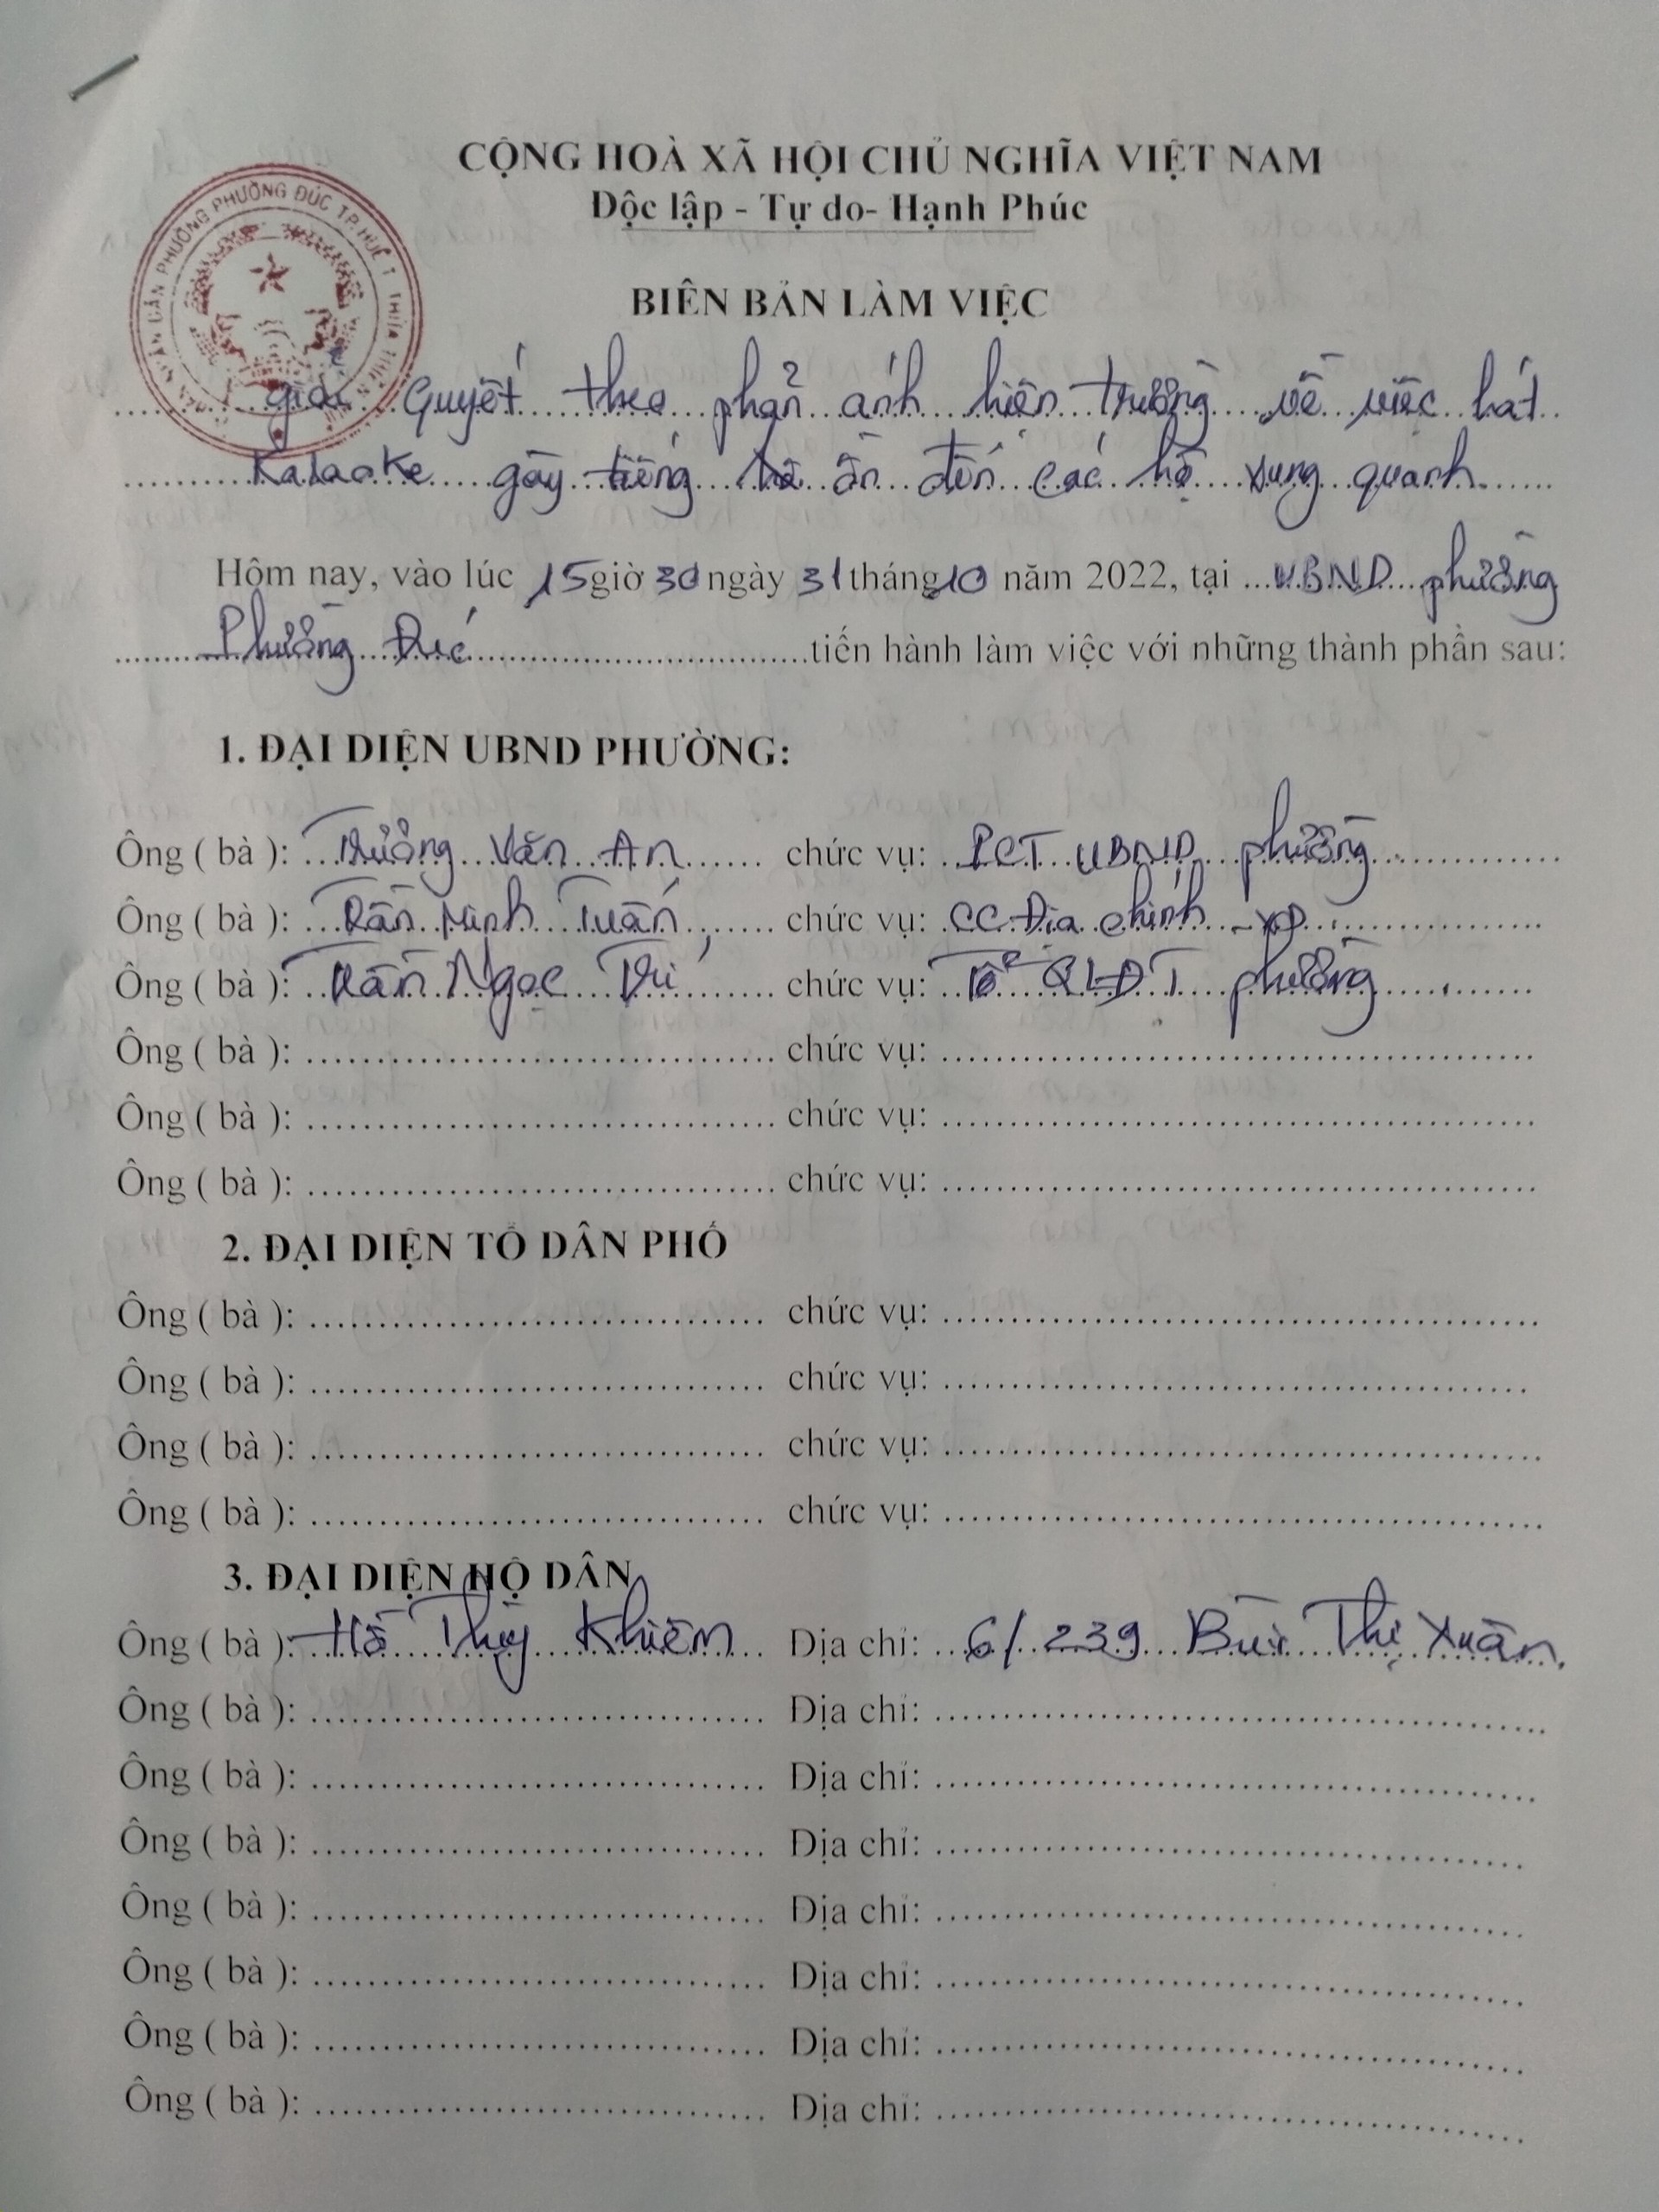 CỘNG HOÀ XÃ HỘI CHỦ NGHĨA VIỆT NAM
Độc lập - Tự do- Hạnh Phúc
PHƯỜNG PHƯỜNG ĐÚC TP. HUẾ T. THỪA THIÊN
BIÊN BẢN LÀM VIỆC
giải Quyết theo phản ánh hiện trường về việc hát
Karaoke gây tiếng ồn đến các hộ xung quanh
Hôm nay, vào lúc 15 giờ 30 ngày 31 tháng 10 năm 2022, tại UBND phường
Phường Đúc tiến hành làm việc với những thành phần sau:
1. ĐẠI DIỆN UBND PHƯỜNG:
Ông ( bà ): Trương Văn An chức vụ: PCT UBND phường
Ông ( bà ): Trần Minh Tuấn chức vụ: CC Địa chính - XD
Ông ( bà ): Trần Ngọc Trí chức vụ: Tổ QLĐT phường
Ông ( bà ): chức vụ:
Ông ( bà ): chức vụ:
Ông ( bà ): chức vụ:
2. ĐẠI DIỆN TỔ DÂN PHỐ
Ông ( bà ): chức vụ:
Ông ( bà ): chức vụ:
Ông ( bà ): chức vụ:
Ông ( bà ): chức vụ:
3. ĐẠI DIỆN HỘ DÂN
Ông ( bà ): Hồ Thùy Khiêm Địa chỉ: 6/239 Bùi Thị Xuân.
Ông ( bà ): Địa chỉ:
Ông ( bà ): Địa chỉ:
Ông ( bà ): Địa chỉ:
Ông ( bà ): Địa chỉ:
Ông ( bà ): Địa chỉ:
Ông ( bà ): Địa chỉ:
Ông ( bà ): Địa chỉ: